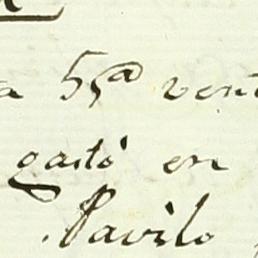 a 55ª vent
gastó en
Pavilo